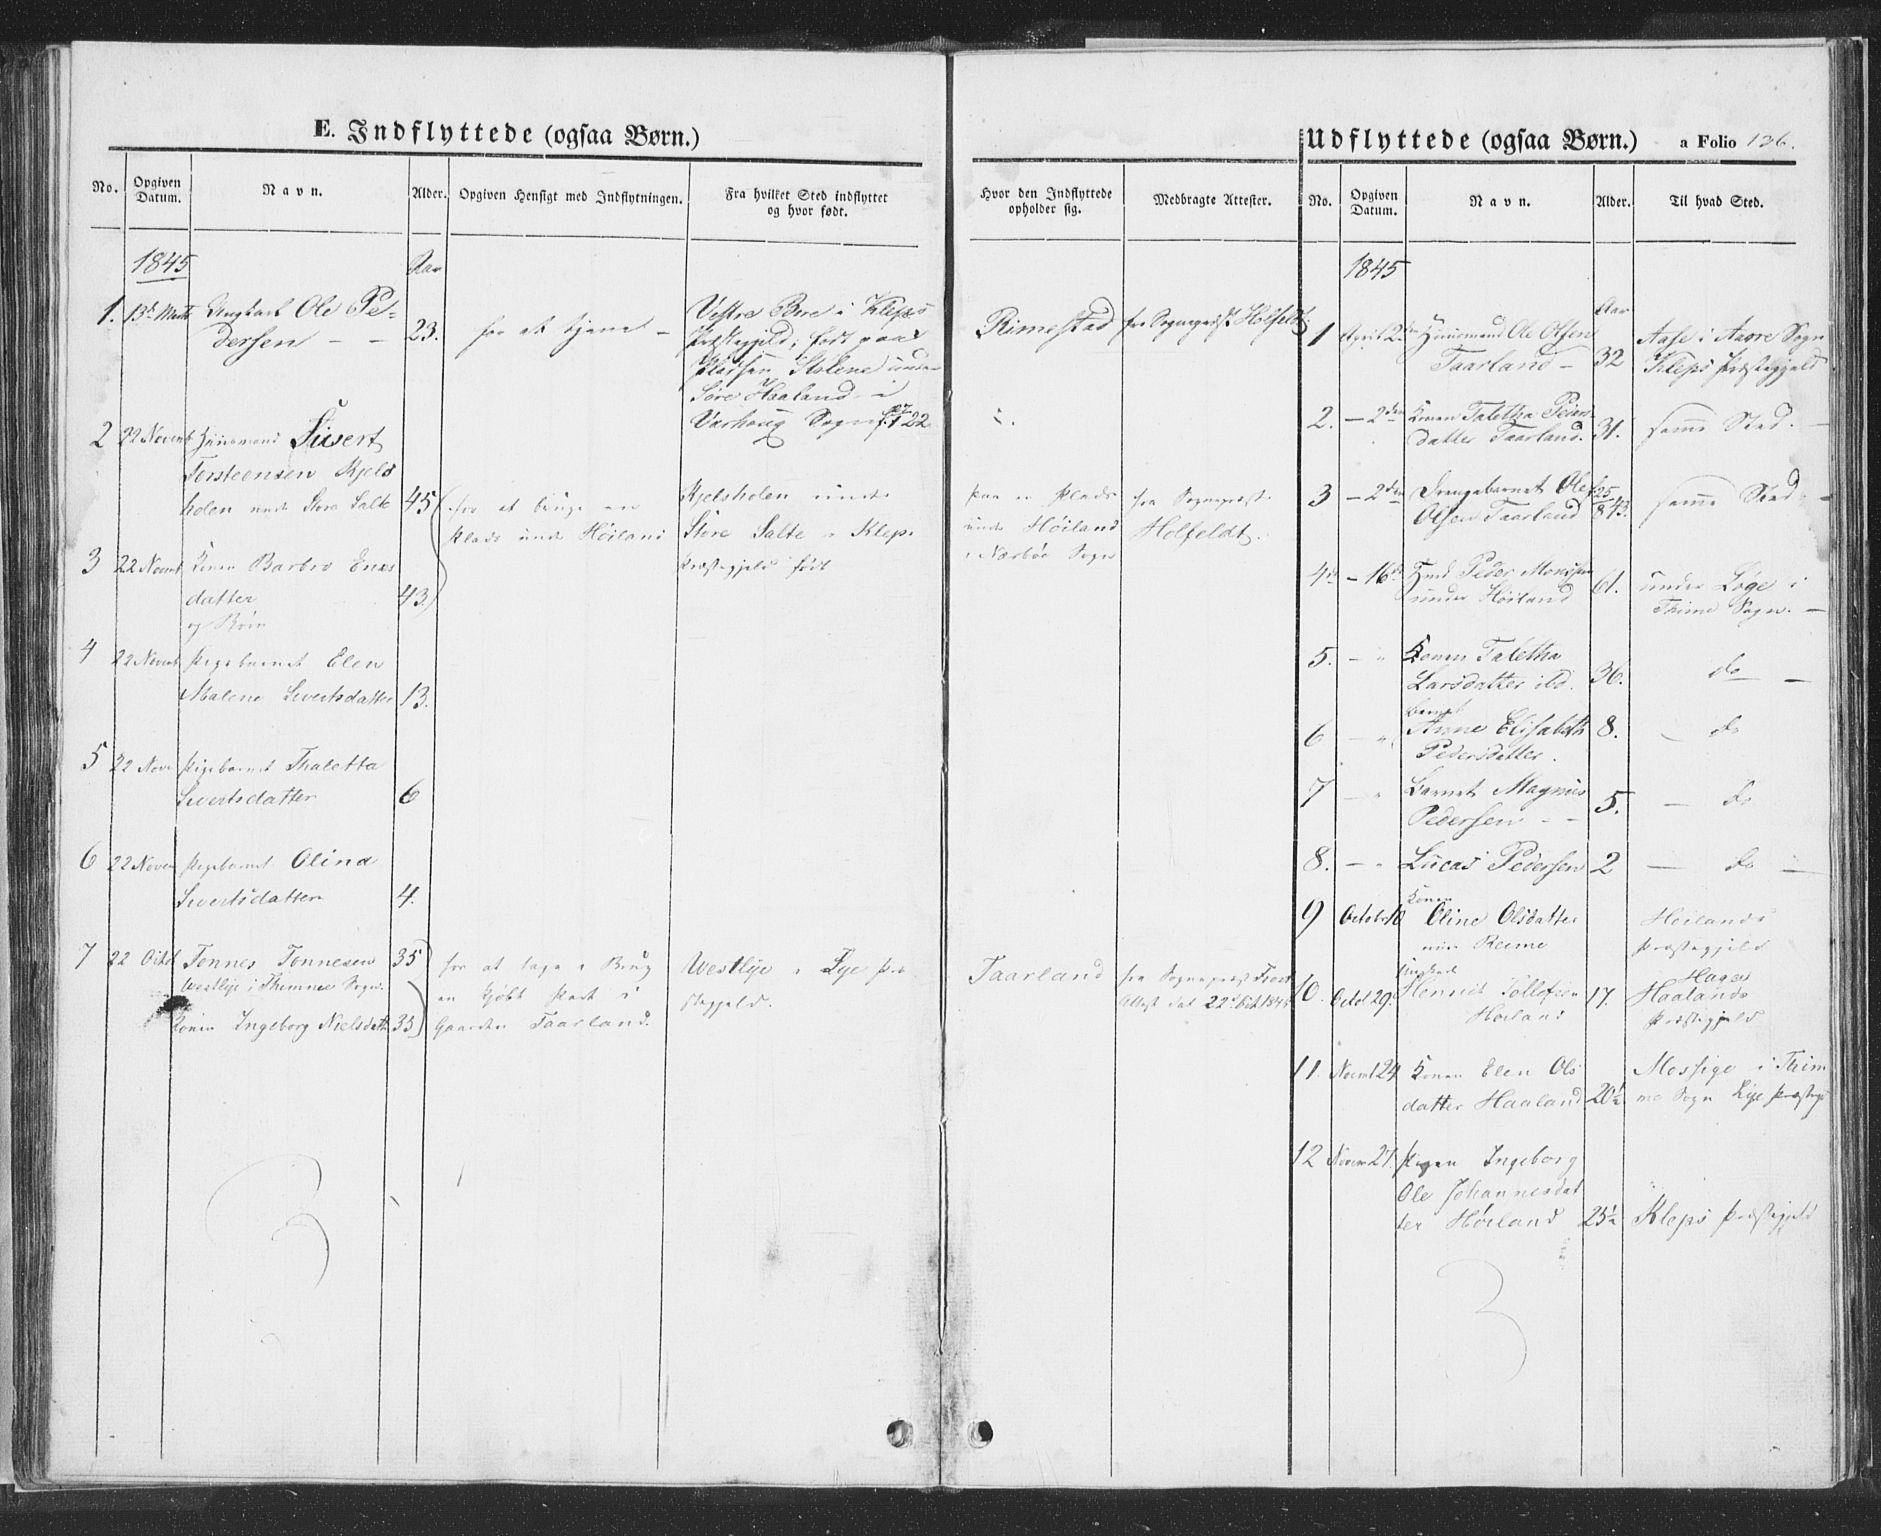 E. Indflyttede (ogsaa Børn.)
No.
Opgiven Datum.
Navn.
Alder.
Opgiven Hensigt med Indflytningen.
Fra hvilket Sted indflyttet
og hvor født.
1845
Aar
1. 13de Ungkarl Ole Pe-
dersen - - 23. for at tjene -
Vestre Bore i Kleps
Præstegjeld, født paa
Pladsen Stolene under
Søre Haaland i
Varhoug Sogn
2 22 Novemb Huusmand Siivert
Torsteensen Kjels
holen under Store Salte 45
for at bruge en
Plads under Høiland
Kjelsholen under
Store Salte i Klep
Præstegjeld født
3 22 Novemb Konen Barbro Enes
datter 43
og Børn
4 22 Novemb Pigebarnet Elen
Malene Sivertsdatter 13.
5 22 Nove Pigebarnet Thaletta
Sivertsdatter 6
6 22 Novem Pigebarnet Olina
Sivertsdatter 4.
7 22 Octob Tønnes Tønnesen 35
Westlye i Thimme Sogn.
Konen Ingeborg Nielsdatt 35
for at tage i Brug
en kjøbt Part i
Gaarden Taarland.
Westlye i Lye Præ
stegjeld.
Hvor den Indflyttede
opholder sig.
Medbragte Attester.
Rimestad
fra Sognepræst Holfeldt
paa en Plads
under Høiland
i Nærbøe Sogn
fra Sognepræst
Holfeldt.
Taarland
fra Sognepræst
Attest dat 22 Oct 1845
Udflyttede (ogsaa Børn.) a Folio 136.
No.
Opgiven Datum.
Navn.
Alder.
Til hvad Sted.
1845
Aar
1 April 2den Huusmand Ole Olsen
Taarland - 32
Aase i Aarre Sogn
Kleps Præstegjeld
2. - 2den Konen Taletha Peders
datter Taarland. 31. samme Sted. -
3 - 2den Drengebarnet Ole
Olsen Taarland 25/8 43. samme Sted -
4de - 16de Hmd Peder Monsen
under Høiland 61.
under Loge i
Thime Sogn. -
5. - " Konen Taletha
Larsdatter ibd. 36. do -
6 - " Barnet
Anne Elisabeth
Pedersdatter. 8. - do
7 - " Barnet Magnus
Pedersen - - 5. - do
8. - " Lucas Pedersen 2 - do -
9 Octobr 10 Konen
Oline Olsdatter
Reime
Høilands
Præstegjeld
10. Octob 29. Ungkarl
Henrik Tollefsen
Høiland 17.
Haga
Haalands
Præstegjeld
11. Novemb 24 Konen Elen Ols
datter Haaland 20½
Mossige i Thim
me Sogn Lye Præsteg
12 Novem 27. Pigen Ingeborg
Ole Johannesdat
ter Høiland 25½ Kleps Præstegjeld
3
3